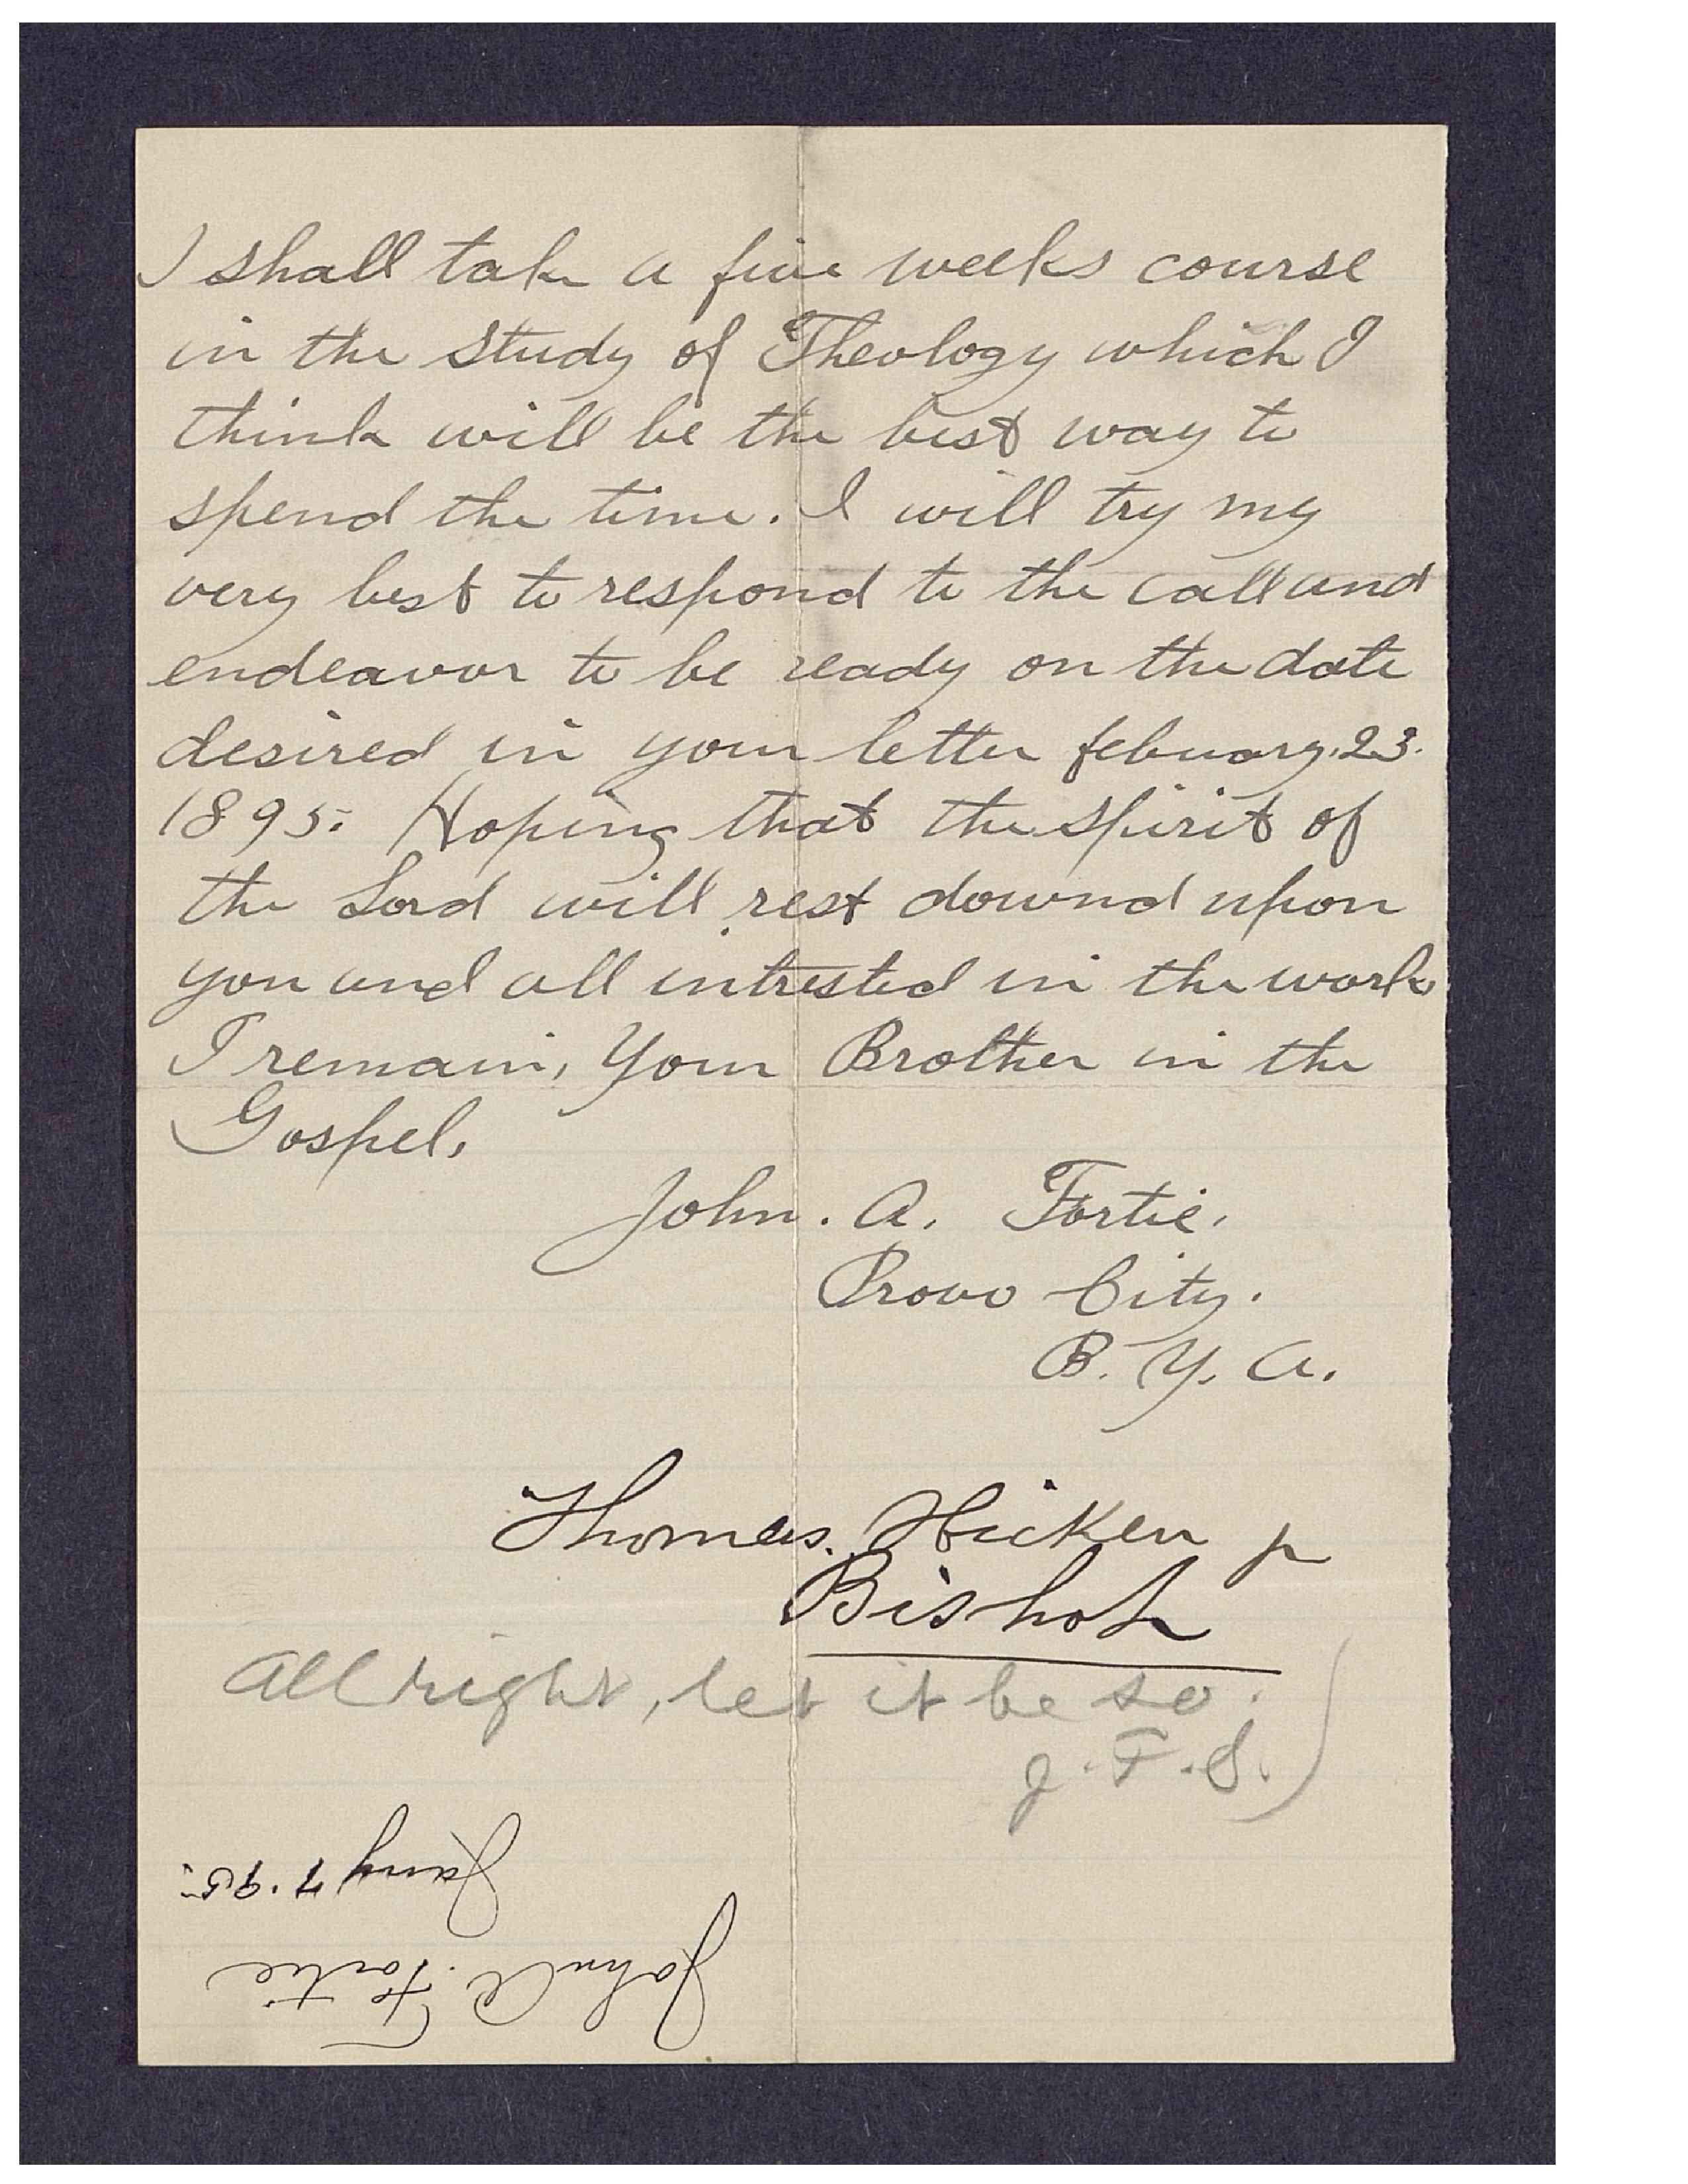 I shall take a five weeks course
in the study of Theology which I
think will be the best way to
spend the time. I will try my
very best to respond to the call and
endeavor to be ready on the date
desired in your letter febuary. 23.
1895. Hoping that the spirit of
the Lord will rest downd upon
you and all intrested in the work
I remain, Your Brother in the
Gospel.
John. A. Fortie.
Provo City.
B. Y. A.
Thomas. Hicken Jr
Bishop
All right, let it be so.
J. F. S.
John A. Fortie
Jany 7. 95.